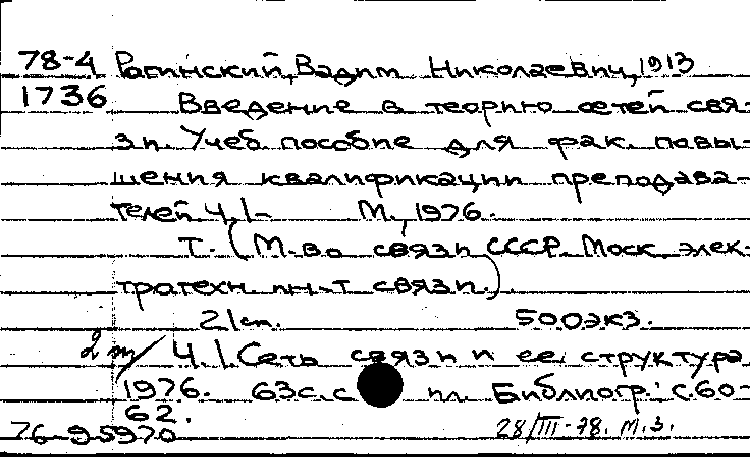 78-4 Рагинский, Вадим Николаевич, 1913
1736 Введение в теорию сетей свя-
зи. Учеб пособие для фак. повы-
шения квалификации преподава-
телей Ч.1- М., 1976.
Т. (М-во связи СССР. Моск. элек-
тротехн. ин-т связи.).
21см. 500экз.
2 т/ Ч.1. Сеть связи и ее структура
1976. 63с. с ил. Библиогр.: с.60-
62.
76-95970 28/III-78. М.З.